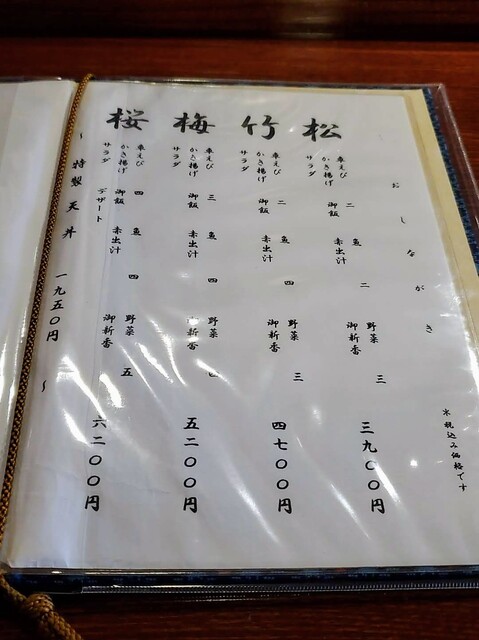 おしながき
※税込み価格です
松
車えび 二 魚 二 野菜 三
かき揚げ 御飯 赤出汁 御新香
サラダ
三九〇〇円
竹
車えび 二 魚 四 野菜 三
かき揚げ 御飯 赤出汁 御新香
サラダ
四七〇〇円
梅
車えび 三 魚 四 野菜 四
かき揚げ 御飯 赤出汁 新香
サラダ
五二〇〇円
桜
車えび 四 魚 四 野菜 五
かき揚げ 御飯 赤出汁 御新香
サラダ デザート
六二〇〇円
~ 特製天丼 一九五〇円 ~